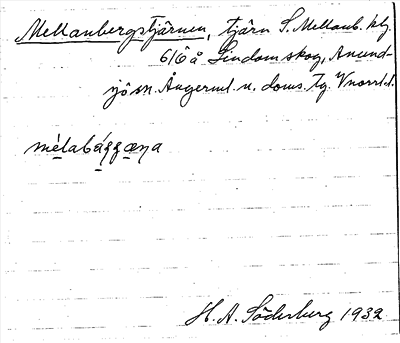 Mellanbergstjärnen, tjärn S. Mellanb. kly.
6/6 å Lindom skog, Anund-
sjö sn. Ångerml. n. doms. Tg. Vnorrl.l.
mèlabággæna
H. A. Söderberg 1932